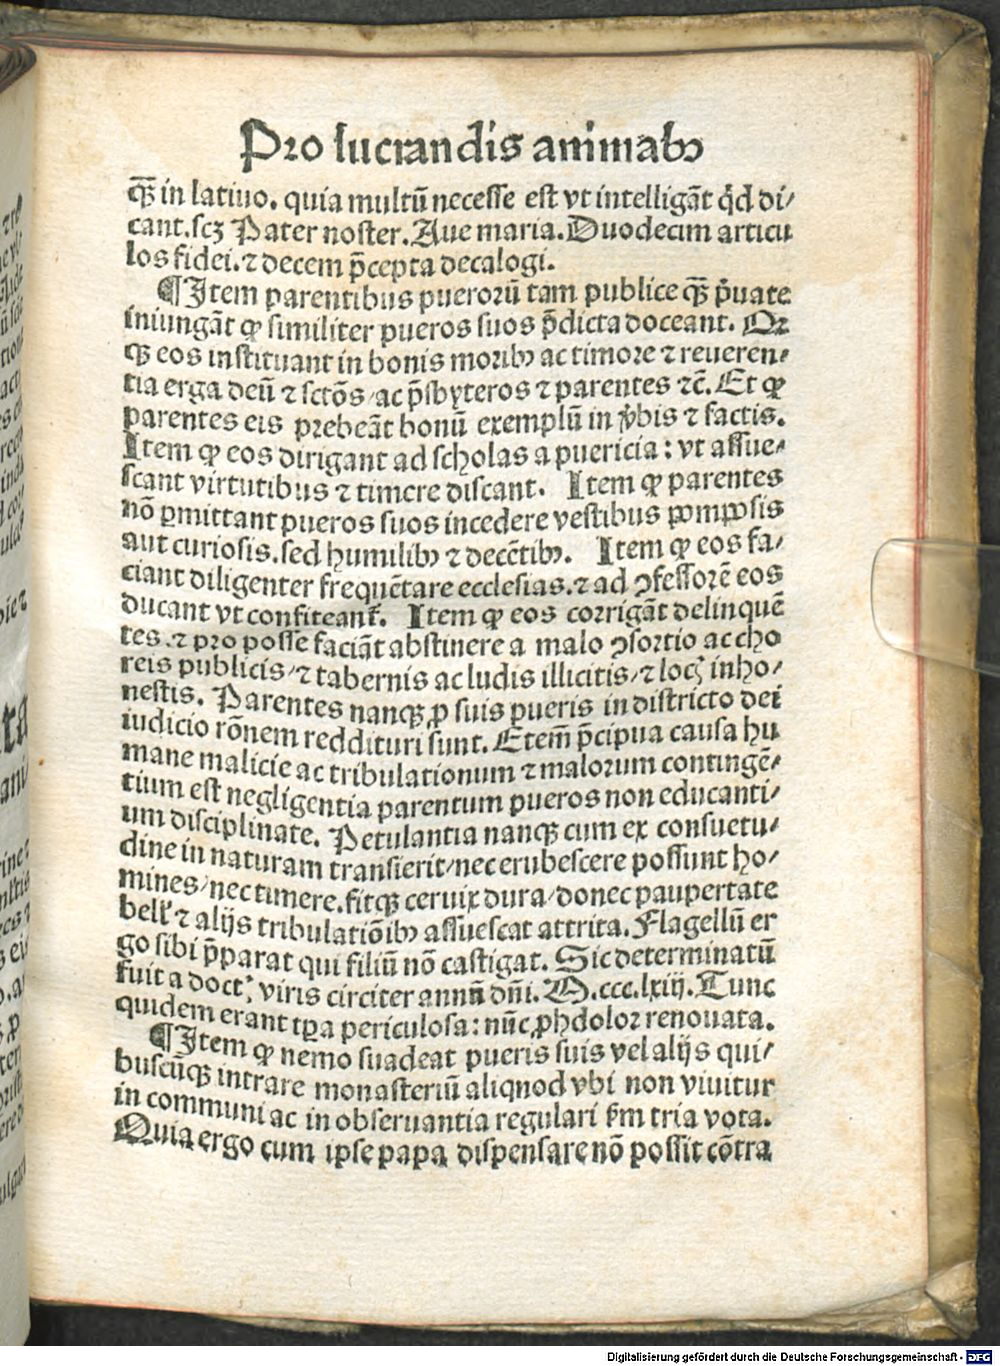 Pro lucrandis animabꝫ
qꝫ̃ in latino. quia multũ necesse est vt intelligãt qd̃ di⸗
cant.scꝫ Pater noster. Aue maria. Duodecim articu
los fidei. ⁊ decem p̃cepta decalogi.
¶ Item parentibus puerorũ tam publice qꝫ̃ p̃uate
iniungãt ꝙ similiter pueros suos p̃dicta doceant. Or
qꝫ eos instituant in bonis moribꝫ ac timore ⁊ reueren⸗
tia erga deũ ⁊ sctõs/ac p̃sbyteros ⁊ parentes ⁊c̃. Et ꝙ
parentes eis prebeãt bonũ exemplũ in v̾bis ⁊ factis.
Item ꝙ eos dirigant ad scholas a puericia: vt assue⸗
scant virtutibus ⁊ timere discant. Item ꝙ parentes
nõ ꝑmittant pueros suos incedere vestibus pomposis
aut curiosis. sed humilibꝫ ⁊ decẽtibꝫ. Item ꝙ eos fa⸗
ciant diligenter frequẽtare ecclesias. ⁊ ad ꝯfessorẽ eos
ducant vt confiteant᷑. Item ꝙ eos corrigãt delinquẽ
tes. ⁊ pro posse faciãt abstinere a malo ꝯsortio ac cho
reis publicis/⁊ tabernis ac ludis illicitis/⁊ locꝭ inho⸗
nestis. Parentes nanqꝫ ꝓ suis pueris in districto dei
iudicio rõnem reddituri sunt. Etem̃ p̃cipua causa hu
mane malicie ac tribulationum ⁊ malorum contingẽ⸗
tium est negligentia parentum pueros non educanti⸗
um disciplinate. Petulantia nanqꝫ cum ex consuetu⸗
dine in naturam transierit/nec erubescere possunt ho⸗
mines/nec timere. fitqꝫ ceruix dura/donec paupertate
bellꝭ ⁊ alijs tribulatiõibꝫ assuescat attrita. Flagellũ er
go sibi p̃parat qui filiũ nõ castigat. Sic determinatũ
fuit a doctꝭ viris circiter annũ dñi. M.ccc.lxiij. Tunc
quidem erant tꝑa periculosa: nũc ꝓhdolor renouata.
¶ Item ꝙ nemo suadeat pueris suis vel alijs qui⸗
buscũqꝫ intrare monasteriũ aliqnod vbi non viuitur
in communi ac in obseruantia regulari s̃m tria vota.
Quia ergo cum ipse papa dispensare nõ possit cõtra
Digitalisierung gefördert durch die Deutsche Forschungsgemeinschaft - DFG